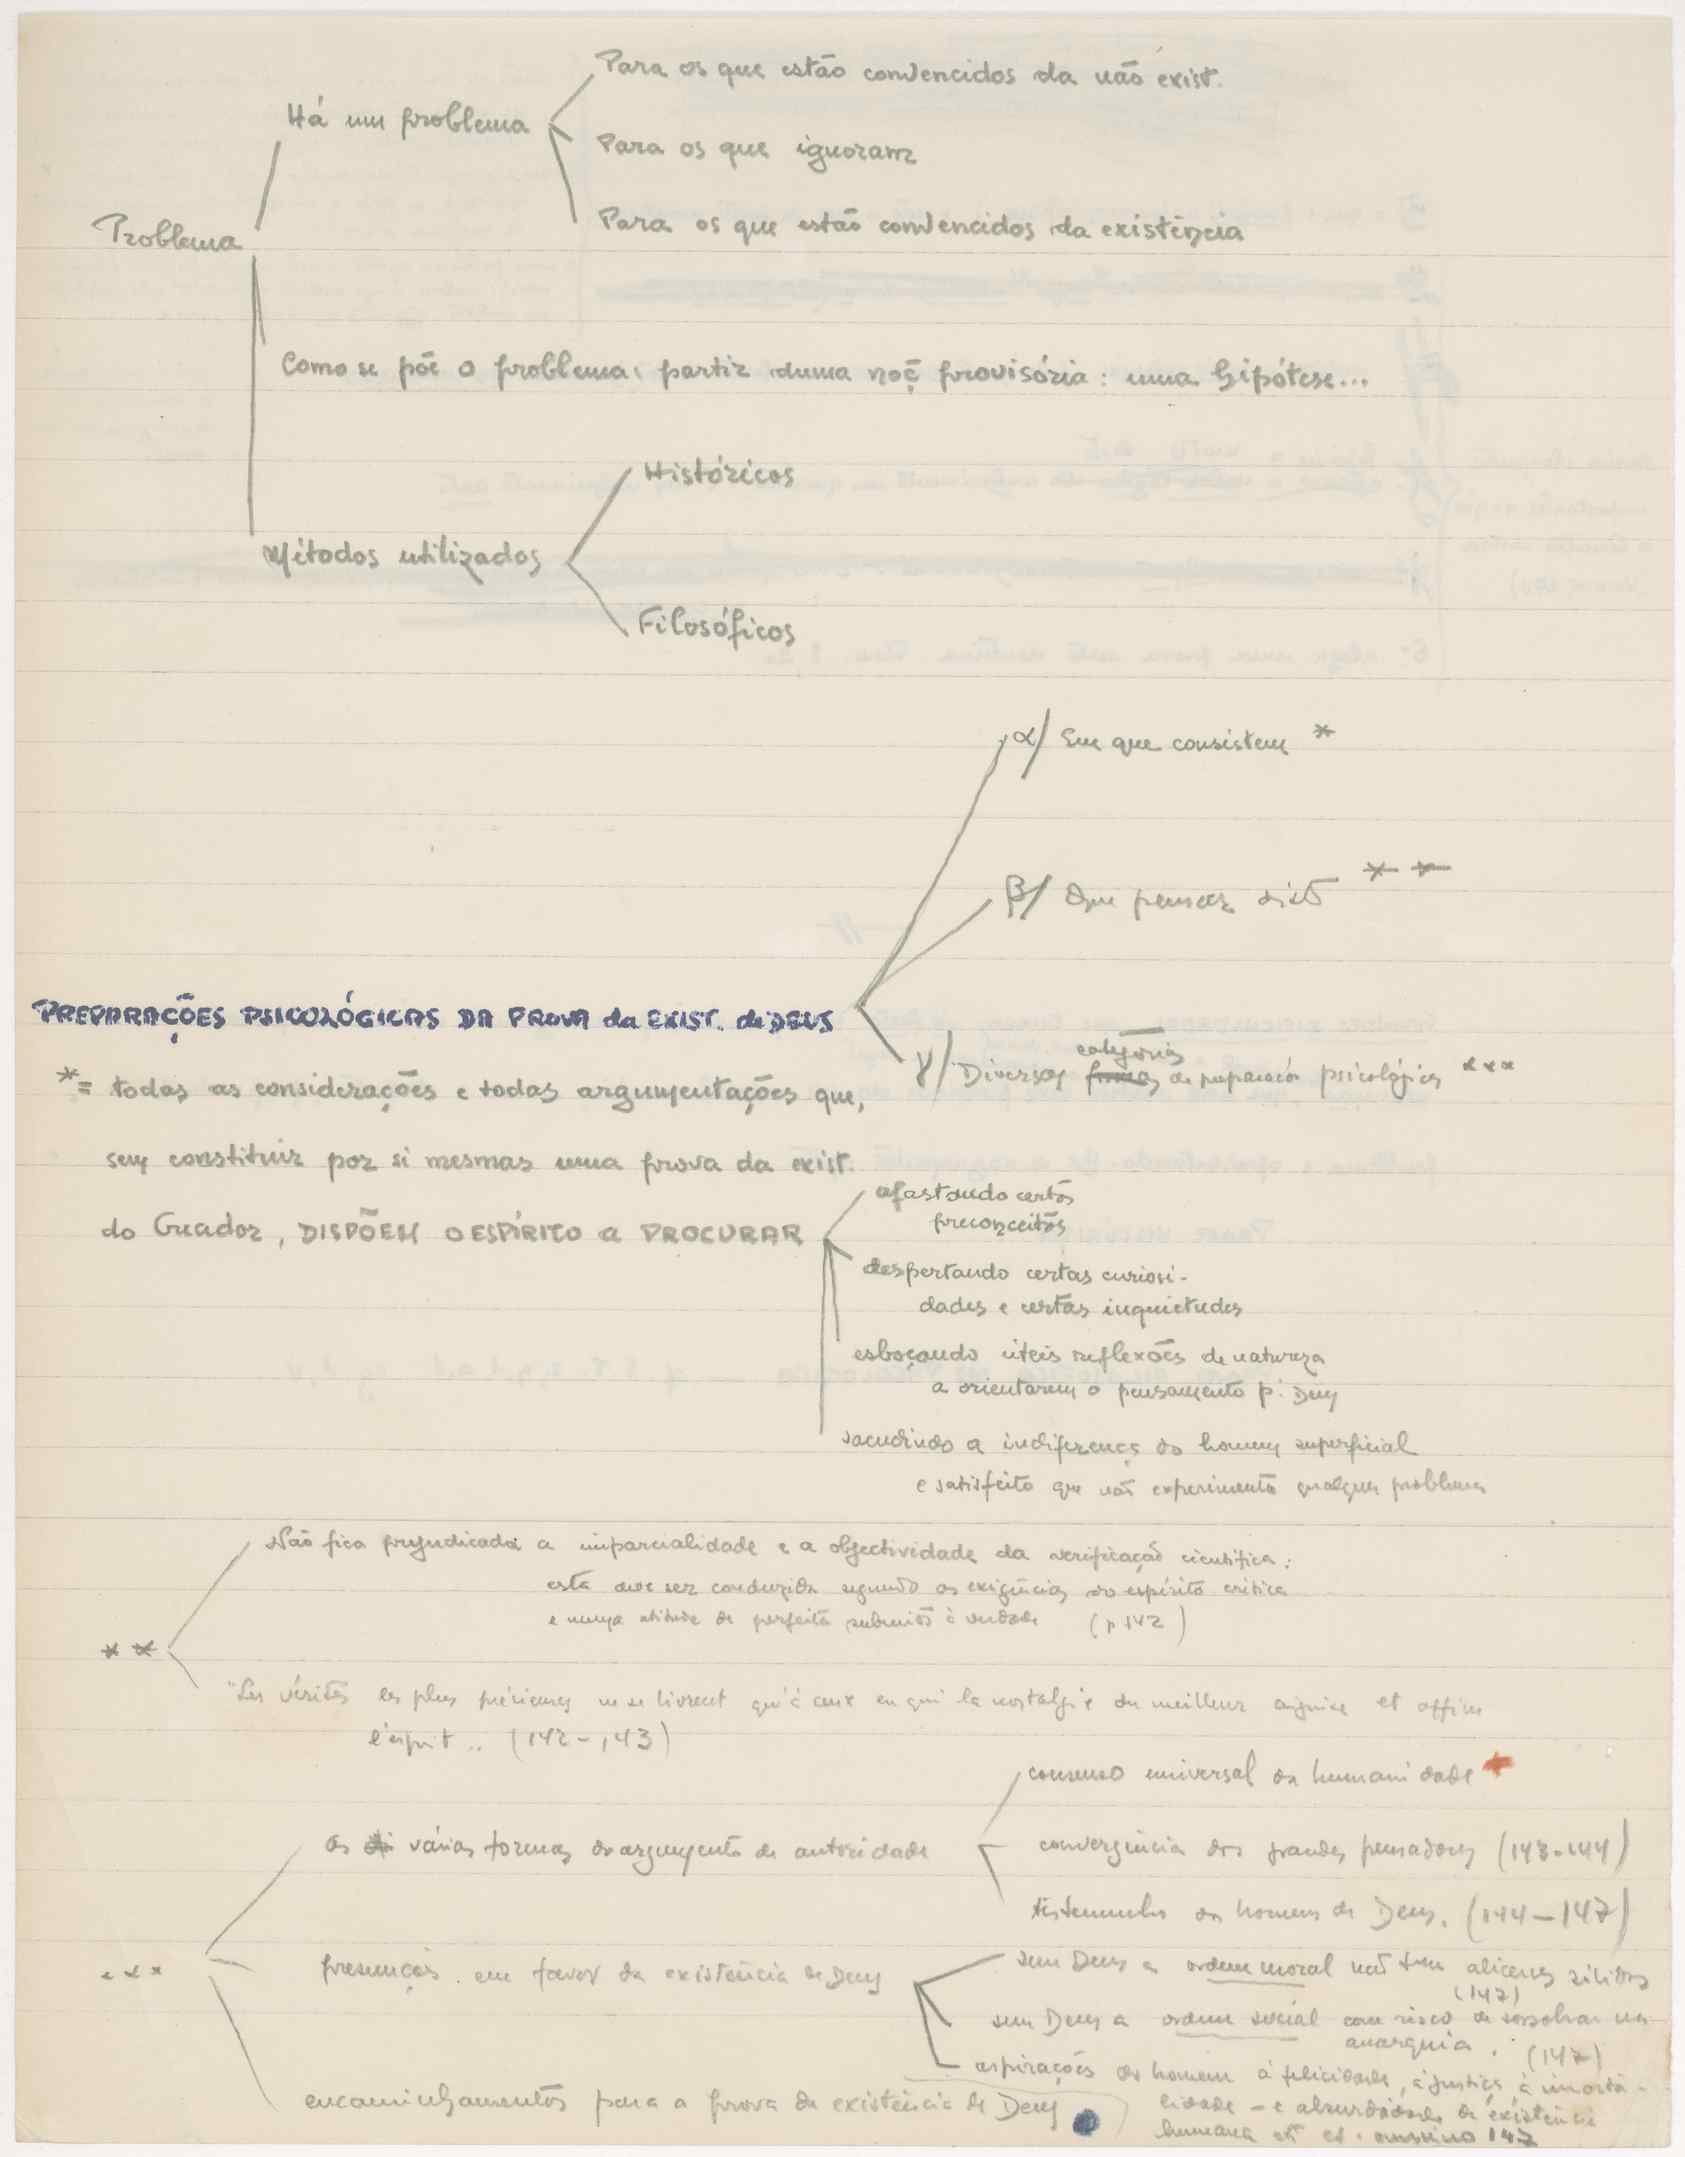 Para os que estão convencidos da não exist.
Há um problema
Para os que ignoram
Para os que estão convencidos da existência
Problema
Como se põe o problema: partir duma noç̃ provisória: uma hipótese...
Históricos
Métodos utilizados
Filosóficos
α/ Em que consistem *
β/ Que pensar disto * *
PREPARAÇÕES PSICOLÓGICAS DA PROVA da EXIST. de DEUS
categorias
γ/ Diversas formas de preparação psicológica ***
*= todas as considerações e todas argumentações que,
sem constituir por si mesmas uma prova da exist.
do Criador, DISPÕEM O ESPÍRITO a PROCURAR
afastando certos
preconceitos
despertando certas curiosi-
dades e certas inquietudes
esboçando úteis reflexões de natureza
a orientarem o pensamento p. Deus
sacudindo a indiferença do homem superficial
e satisfeito que não experimenta qualquer problema
Não fica prejudicada a imparcialidade e a objectividade da verificação científica:
esta deve ser conduzida segundo as exigências do espírito crítico
e numa atitude de perfeita submissão à verdade (p 142)
* *
"Les vérités les plus précieuses ne se livrent qu'à ceux en qui la nostalgie du meilleur aiguise et affine
l'esprit .. (142-143)
consenso universal da humanidade
Os várias formas do argumento de autoridade
convergência dos grandes pensadores (143-144)
testemunho dos homens de Deus. (144-147)
***
presunções em favor da existência de Deus
sem Deus a ordem moral não tem alicerces sólidos
(147)
sem Deus a ordem social corre risco de sossobrar na
anarquia. (147)
aspirações do homem à felicidade, à justiça, à imorta-
lidade - e absurdidade da existência
humana 147
encaminhamentos para a prova da existência de Deus